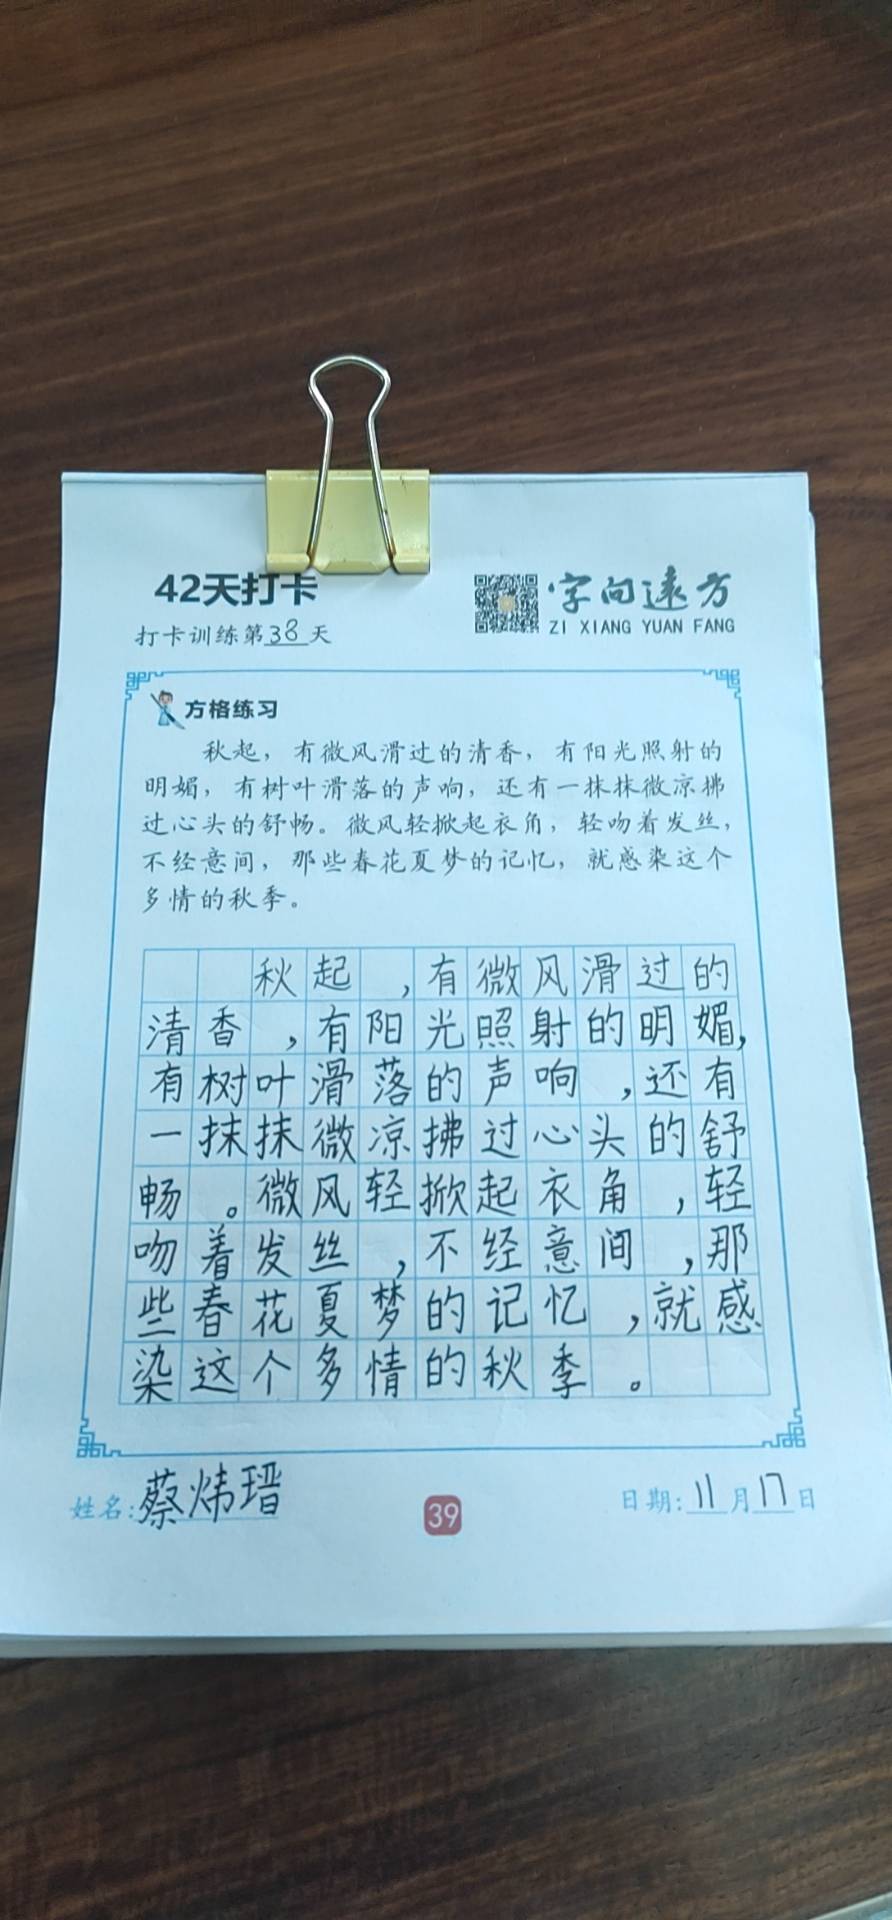 42天打卡
字向远方
ZI XIANG YUAN FANG
打卡训练第38天
方格练习
秋起，有微风滑过的清香，有阳光照射的
明媚，有树叶滑落的声响，还有一抹抹微凉拂
过心头的舒畅。微风轻掀起衣角，轻吻着发丝，
不经意间，那些春花夏梦的记忆，就感染这个
多情的秋季。
秋起，有微风滑过的
清香，有阳光照射的明媚，
有树叶滑落的声响，还有
一抹抹微凉拂过心头的舒
畅。微风轻掀起衣角，轻
吻着发丝，不经意间，那
些春花夏梦的记忆，就感
染这个多情的秋季。
姓名：蔡炜瑨
39
日期：11月17日